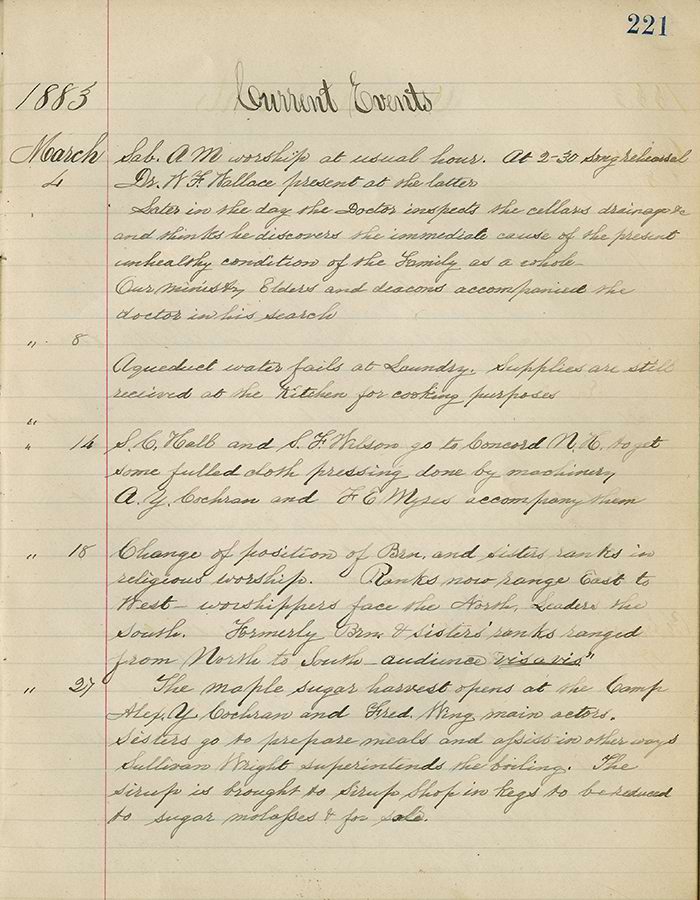 221
1883 Current Events
March Sab. A M worship at usual hour. At 2-30 Song rehearsal
4 Dr. W. F. Wallace present at the latter
Later in the day the Doctor inspects the cellars drainage &c
and thinks he discovers the immediate cause of the present
unhealthy condition of the Family as a whole-
Our ministry Elders and deacons accompanied the
doctor in his search
" 8
Aqueduct water fails at Laundry. Supplies are still
received at the Kitchen for cooking purposes
"
" 14 S. C. Hall and S. F. Wilson go to Concord N. H. to get
some fulled cloth pressing done by machinery
A. Y. Cochran and F E Myres accompany them
" 18 Change of position of Brn. and sisters ranks in
religious worship. Ranks now range East to
West - worshippers face the North, Leaders the
South. Formerly Brn. & sisters' ranks ranged
from North to South - audience "vis a vis"
" 27 The maple sugar harvest opens at the Camp
Alex. Y Cochran and Fred. Wing main actors.
Sisters go to prepare meals and assist in other ways
Sullivan Wright superintends the boiling. The
sirup is brought to Sirup Shop in kegs to be reduced
to sugar molasses & for sale.